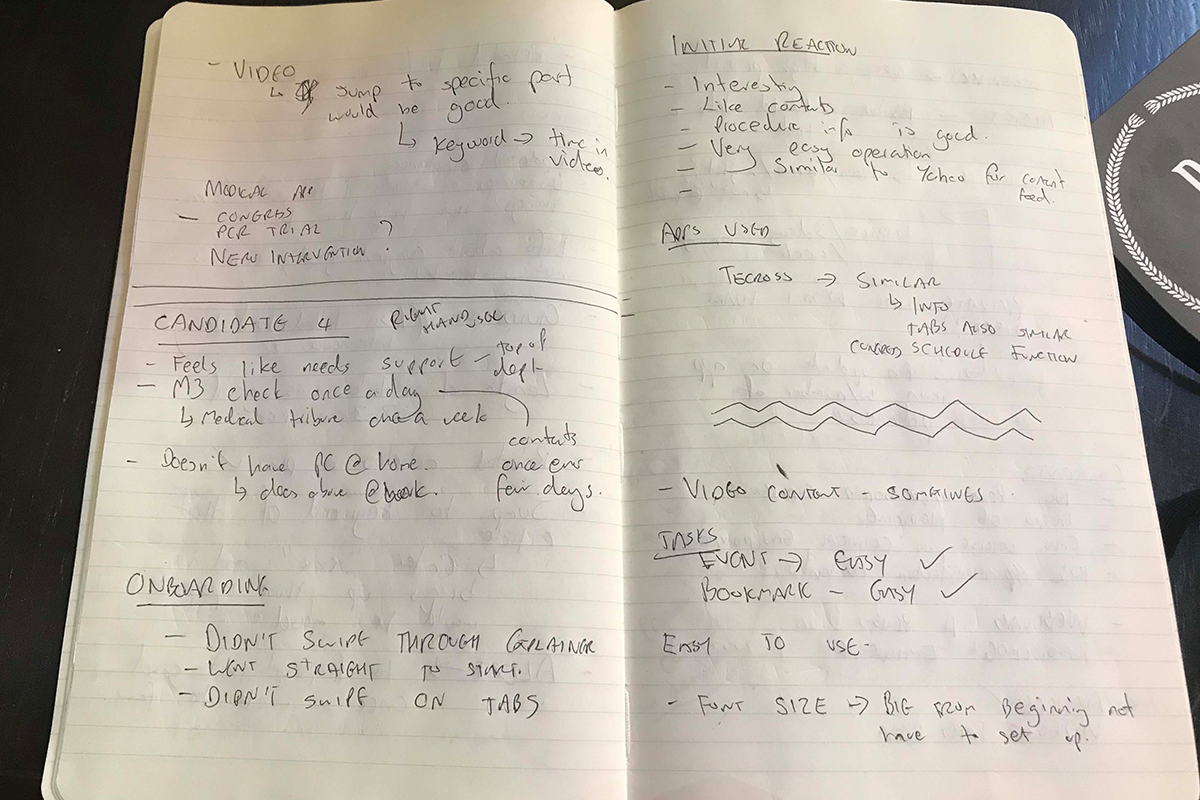 - VIDEO
↳ Jump to specific part
would be good.
↳ Keyword → time in
video.
MEDICAL APP
- CONGRESS
PCR TRIAL ?
NERV INTERVENTION.
CANDIDATE 4
RIGHT
HAND USE
- Feels like needs support - top of
dept
- M3 check once a day
↳ Medical tribune once a week
contents
once every
few days.
- Doesn't have PC @ home.
↳ does above @ work.
ONBOARDING
- DIDN'T SWIPE THROUGH EXPLAINER
- WENT STRAIGHT TO START.
- DIDN'T SWIPE ON TABS
INITIAL REACTION
- Interesting
- Like contents
- Procedure info is good.
- Very easy operation
- Similar to Yahoo for content
feed.
-
APPS USED
TECROSS → SIMILAR
↳ INFO
TABS ALSO SIMILAR
CONGRESS SCHEDULE FUNCTION
- VIDEO CONTENT - SOMETIMES.
TASKS
EVENT → EASY ✓
BOOKMARK - EASY ✓
EASY TO USE-
- FONT SIZE → BIG FROM Beginning not
have to set up.